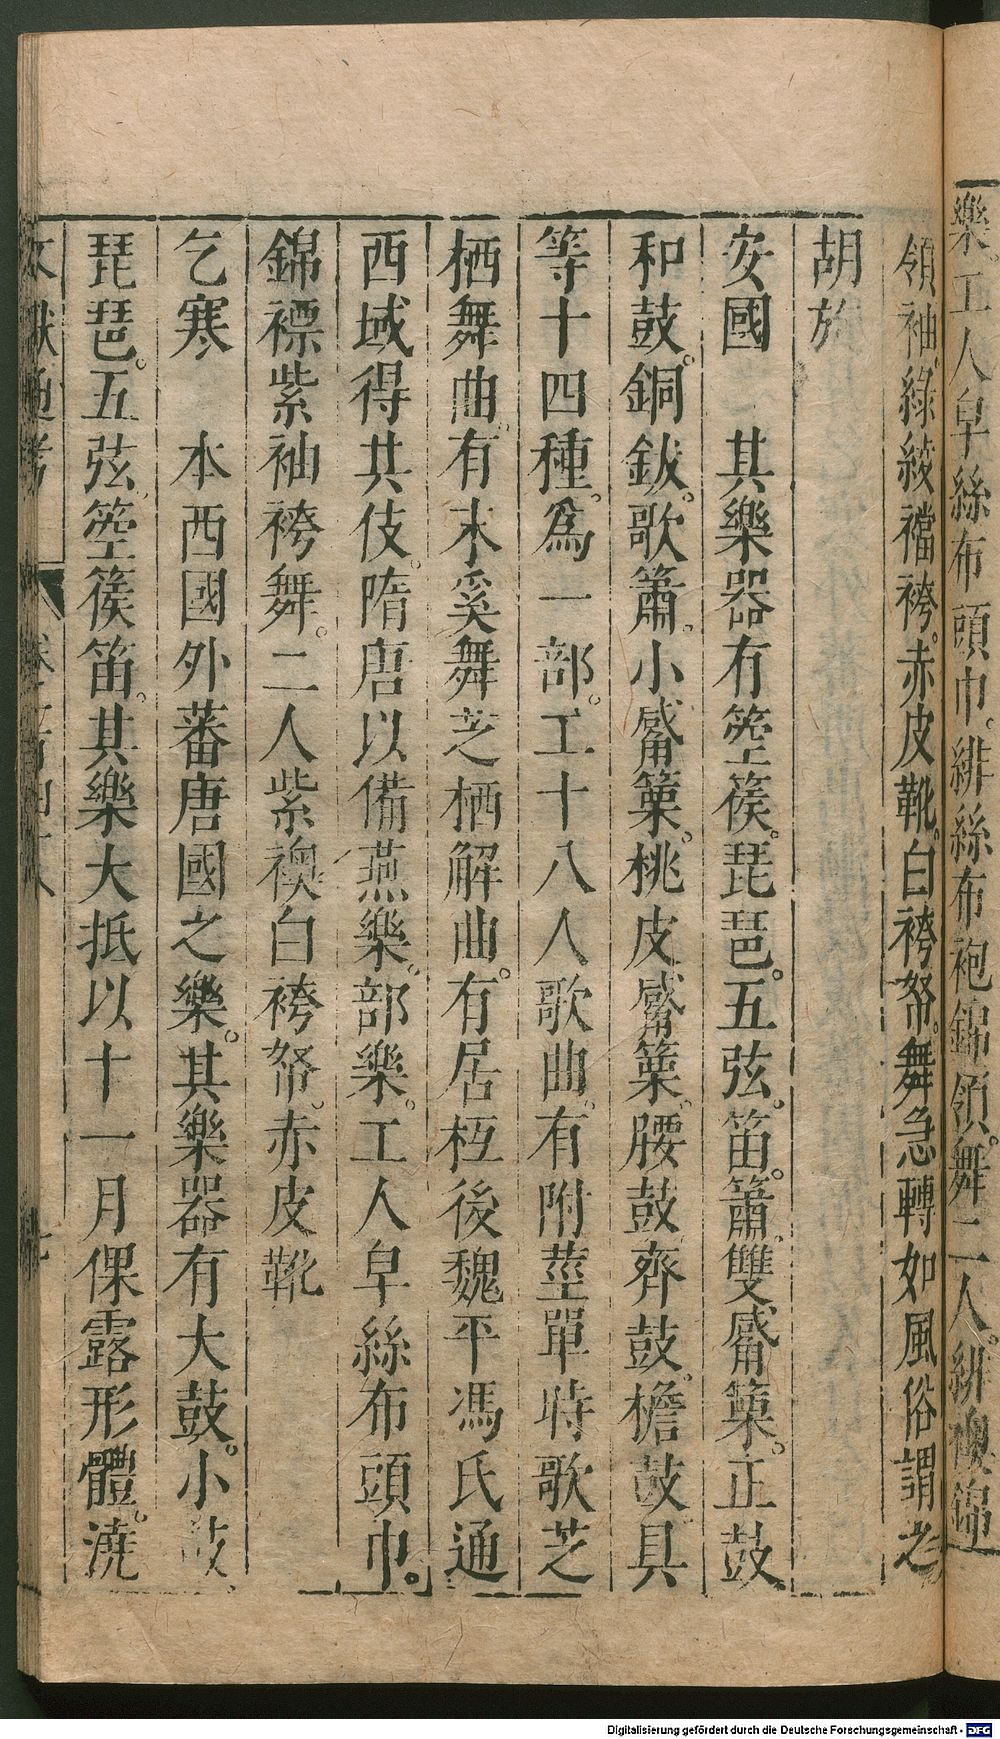 樂工人皁絲布頭巾。緋絲布袍錦領。舞二人。緋襖錦
領袖。綠綾襠袴。赤皮靴。白袴帑。舞急轉如風俗謂之
胡旋
安國　其樂器有箜篌。琵琶。五弦。笛。簫。雙觱篥。正鼓
和鼓。銅鈸。歌簫。小觱篥。桃皮觱篥。腰鼓齊鼓。檐鼓具
等十四種。爲一部。工十八人歌曲。有附莖單時歌芝
栖舞曲。有末奚舞芝栖解曲。有居桓後魏平馮氏通
西域得其伎。隋唐以備燕樂。部樂。工人皁絲布頭巾。
錦褾紫袖袴舞。二人紫襖白袴帑。赤皮靴
乞寒　本西國外蕃唐國之樂。其樂器有大鼓。小鼓。
琵琶。五弦。箜篌笛。其樂大抵以十一月倮露形體。澆
文獻通考
Digitalisierung gefördert durch die Deutsche Forschungsgemeinschaft - DFG